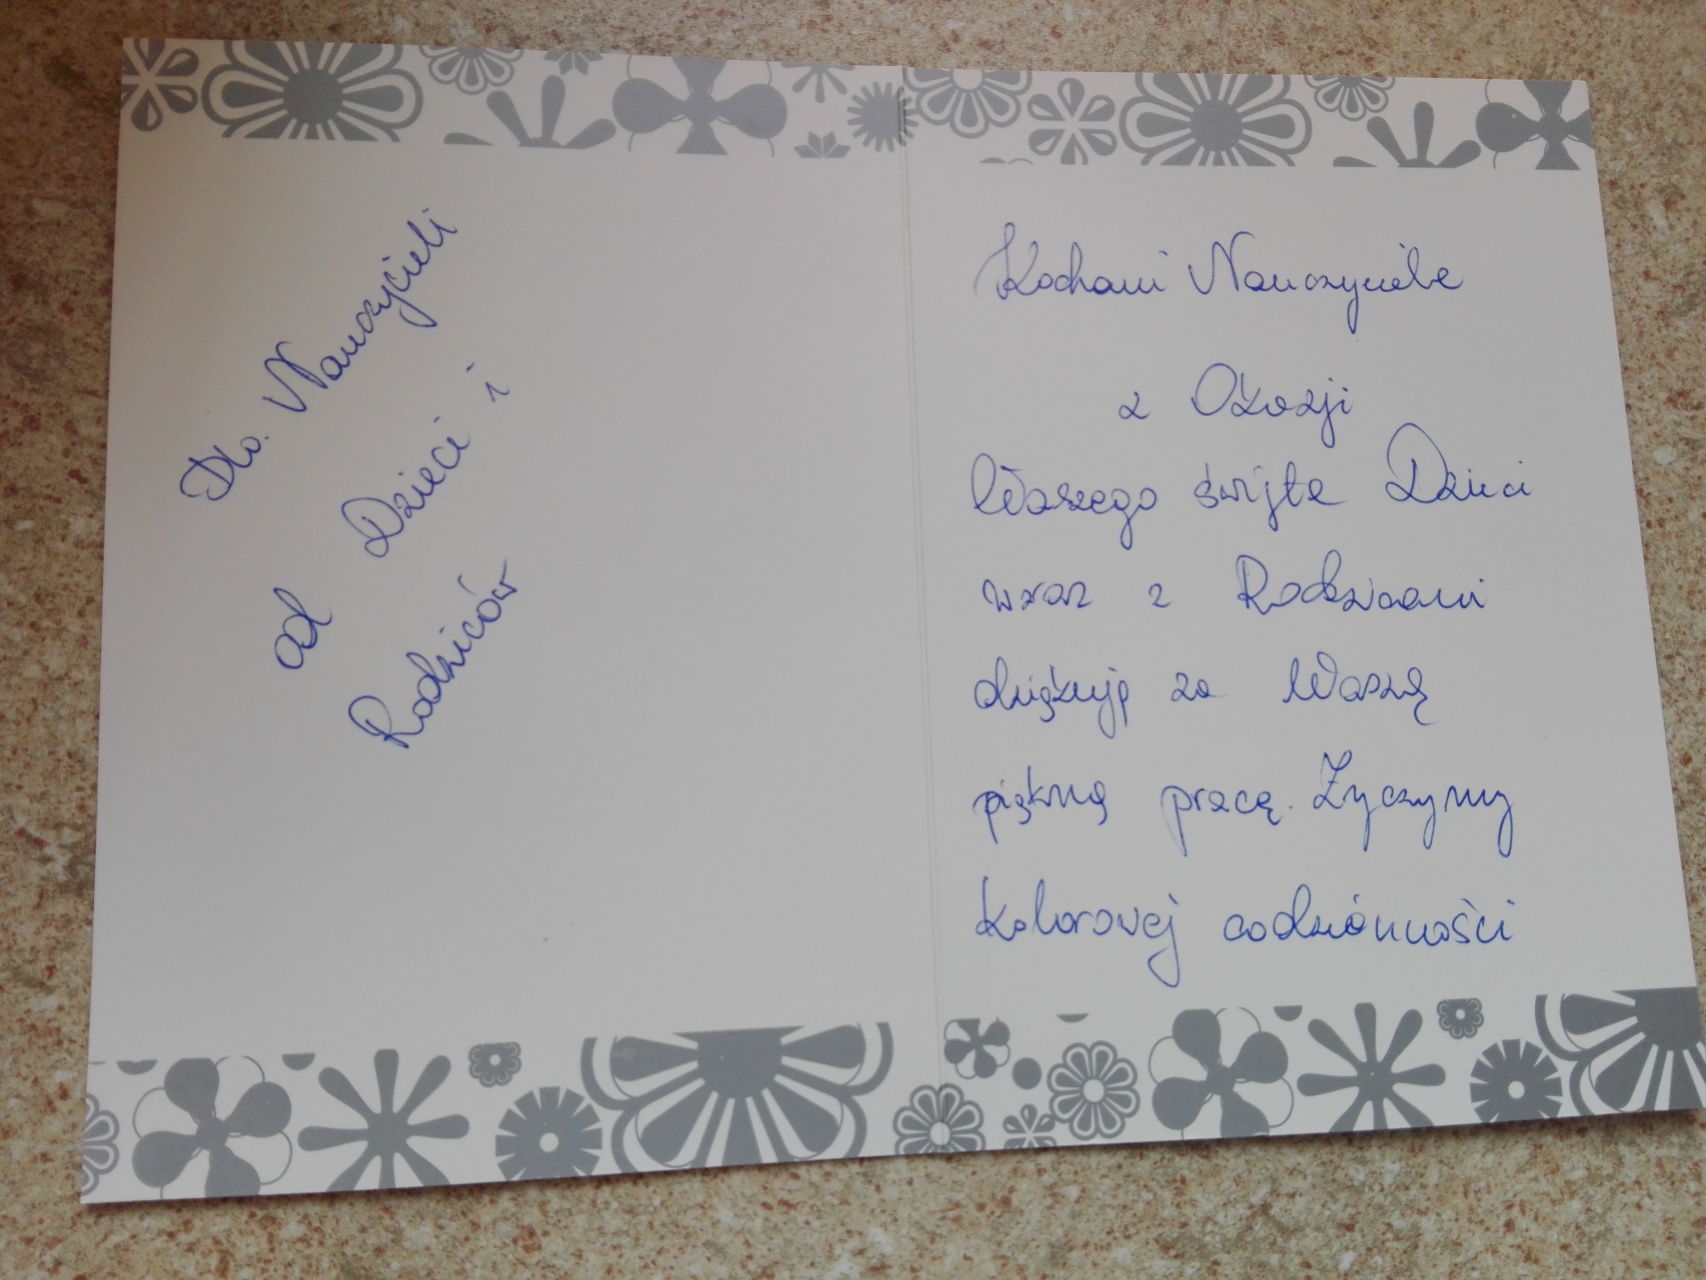 Dla. Nauczycieli
od Dzieci i
Rodziców
Kochani Nauczyciele
z Okazji
Waszego święta Dzieci
wraz z Rodzicami
dziękuję za Waszą
piękną pracę. Życzymy
kolorowej codzienności